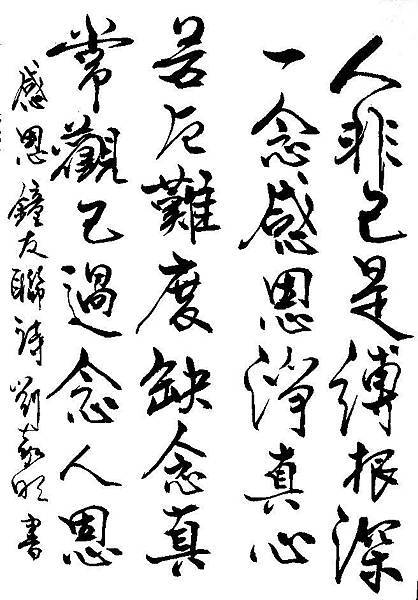 人非己是縛根深
一念感恩淨真心
苦厄難度缺念真
常觀己過念人恩
感恩鐘友聯詩 劉嘉明書